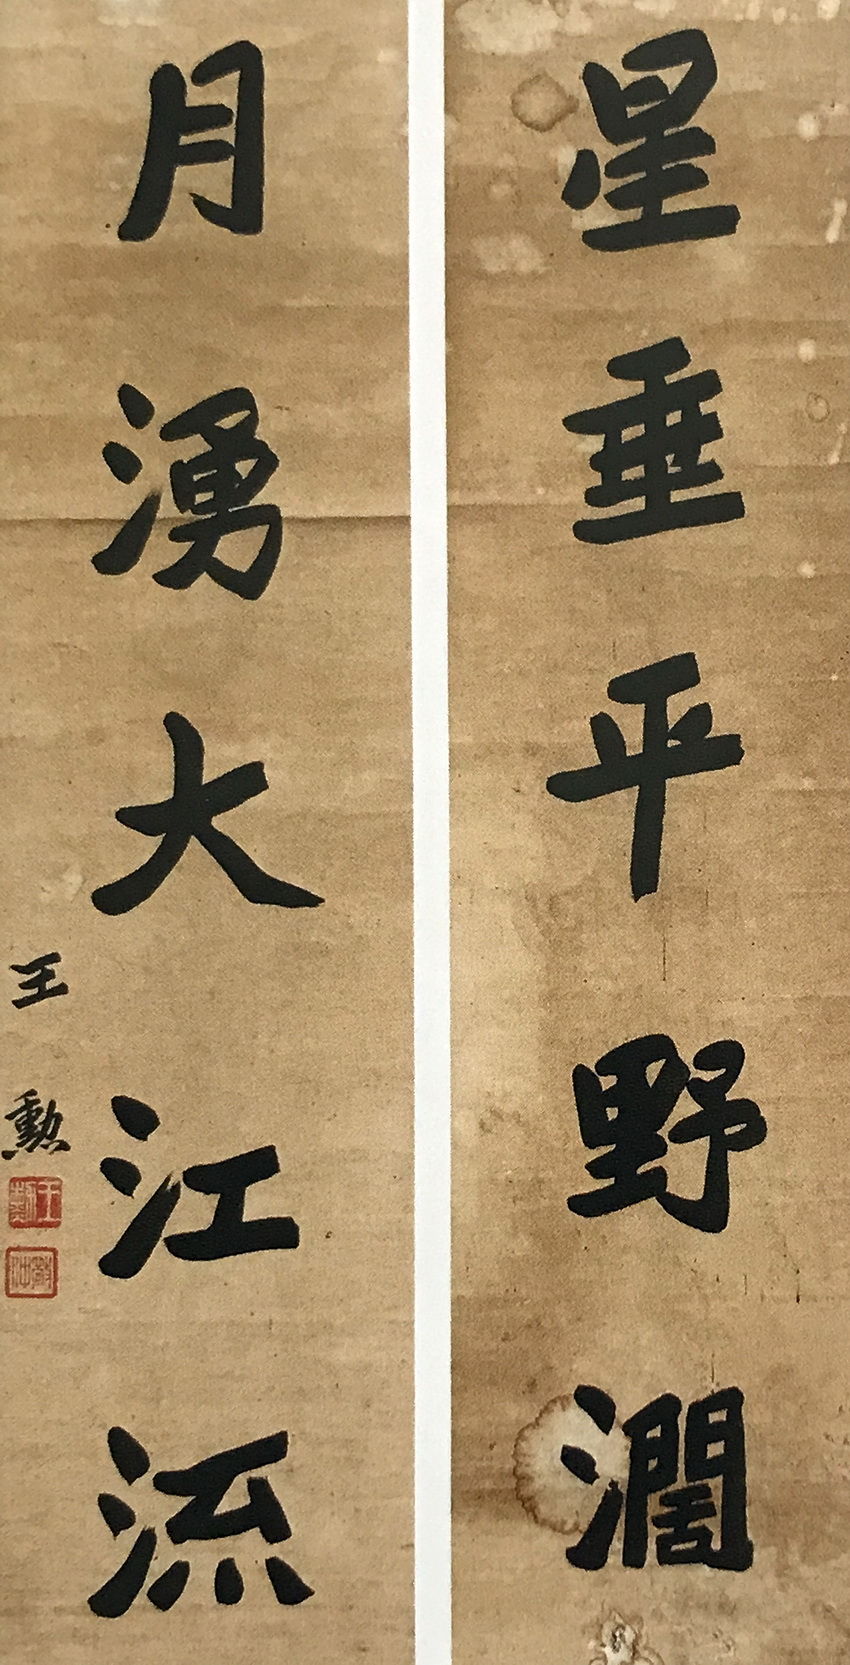 星垂平野濶
月湧大江流
王勲